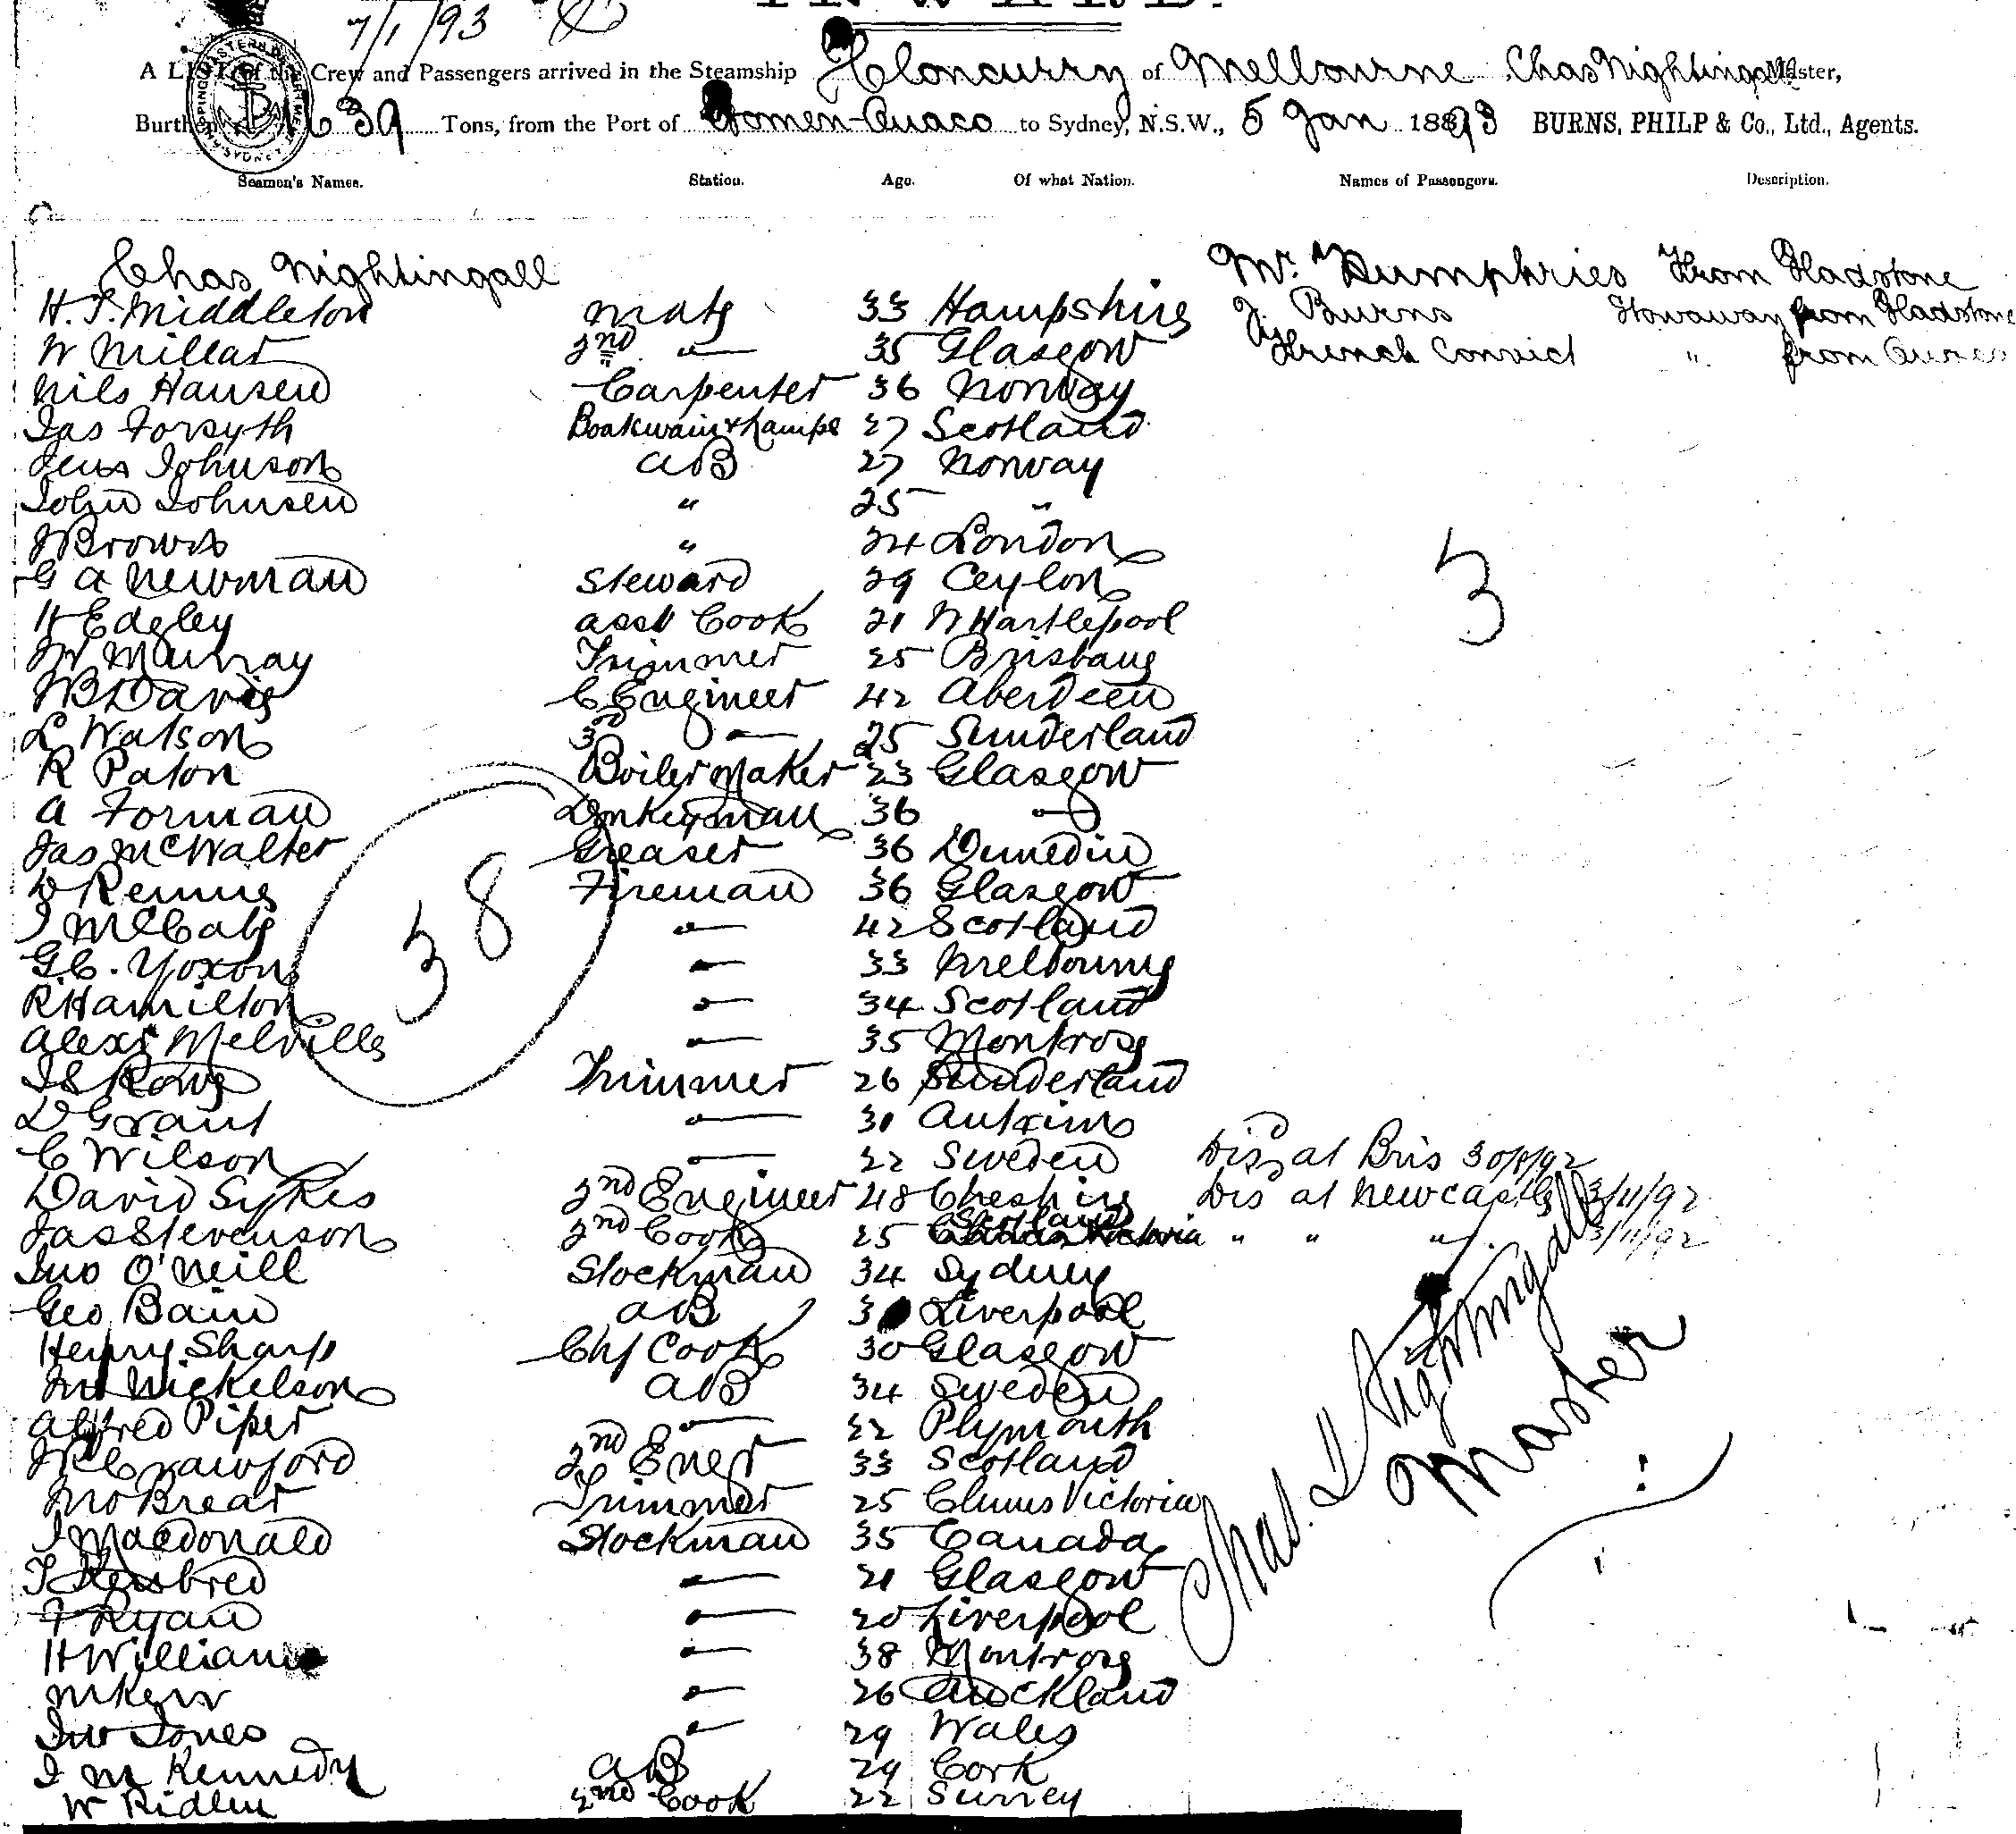 7/1/93
A LIST of the Crew and Passengers arrived in the Steamship Cloncurry of Melbourne Chas Nightingall Master,
Burthen 1639 Tons, from the Port of to Sydney, N.S.W., 5 Jan 1893 BURNS, PHILP & Co., Ltd., Agents.
Seamen's Names. Station. Age. Of what Nation. Names of Passengers. Description.
Chas Nightingall Mr. Humphries From Gladstone
H. T. Middleton Mate 33 Hampshire J. Burns Stowaway from Gladstone
W Millar 2nd " 35 Glasgow French Convict " from
Nils Hansen Carpenter 36 Norway
Jas Forsyth Boatswain & Lamps 27 Scotland
Jens Johnson AB 27 Norway
John Johnsen " 25 "
J Brown " 24 London
G A Newman Steward 29 Ceylon
H Edgley asst Cook 21 W Hartlepool
W Murray Trimmer 25 Brisbane
J B Davie C Engineer 42 Aberdeen
L Watson 3rd " 25 Sunderland
R Paton Boiler Maker 23 Glasgow
A Forman Donkeyman 36 "
Jas McWalter Greaser 36 Dunedin
D Rennie Fireman 36 Glasgow
J McCabe " 42 Scotland
G.C. Yoxon " 33 Melbourne
R Hamilton " 34 Scotland
Alexr Melville " 35 Montrose
J S Rowe Trimmer 26 Sunderland
D Grant " 30 Antrim
C Wilson " 22 Sweden Disd at Bris
David Sykes 2nd Engineer 48 Cheshire Dis at Newcastle 3/11/92
Jas Stevenson 2nd Cook 25 Scotland " " " 3/11/92
Jno O'Neill Stockman 34 Sydney
Geo Bain AB Liverpool
Henry Sharp Chf Cook 30 Glasgow
Jno Nickelson AB 34 Sweden
Alfred Piper " 22 Plymouth
Crawford 2nd Engr 33 Scotland
Jno Brear Trimmer 25 Clunes Victoria
J Macdonald Stockman 35 Canada
T " 21 Glasgow
F Ryan " 20 Liverpool
H Williams " 38 Montrose
M Kerr " 26 Auckland
Jno Jones " 29 Wales
J M Kennedy AB 29 Cork
W Ridlen 2nd Cook 22 Surrey
3
38
Chas. Nightingall
Master